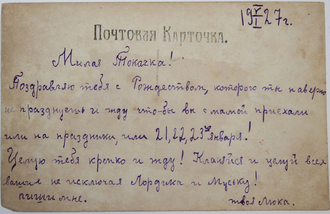 19 V/I 27 г.
Почтовая Карточка.
Милая Токочка!
Поздравляю тебя с Рождеством, которого ты наверно
не празднуешь и жду что-бы вы с мамой приехали
или на праздники, или 21, 22, 23го Января!
Целую тебя крепко и жду! Кланяйся и целуй всех
ваших не исключая Лордика и Муську!
пиши мне.
твоя Мока.